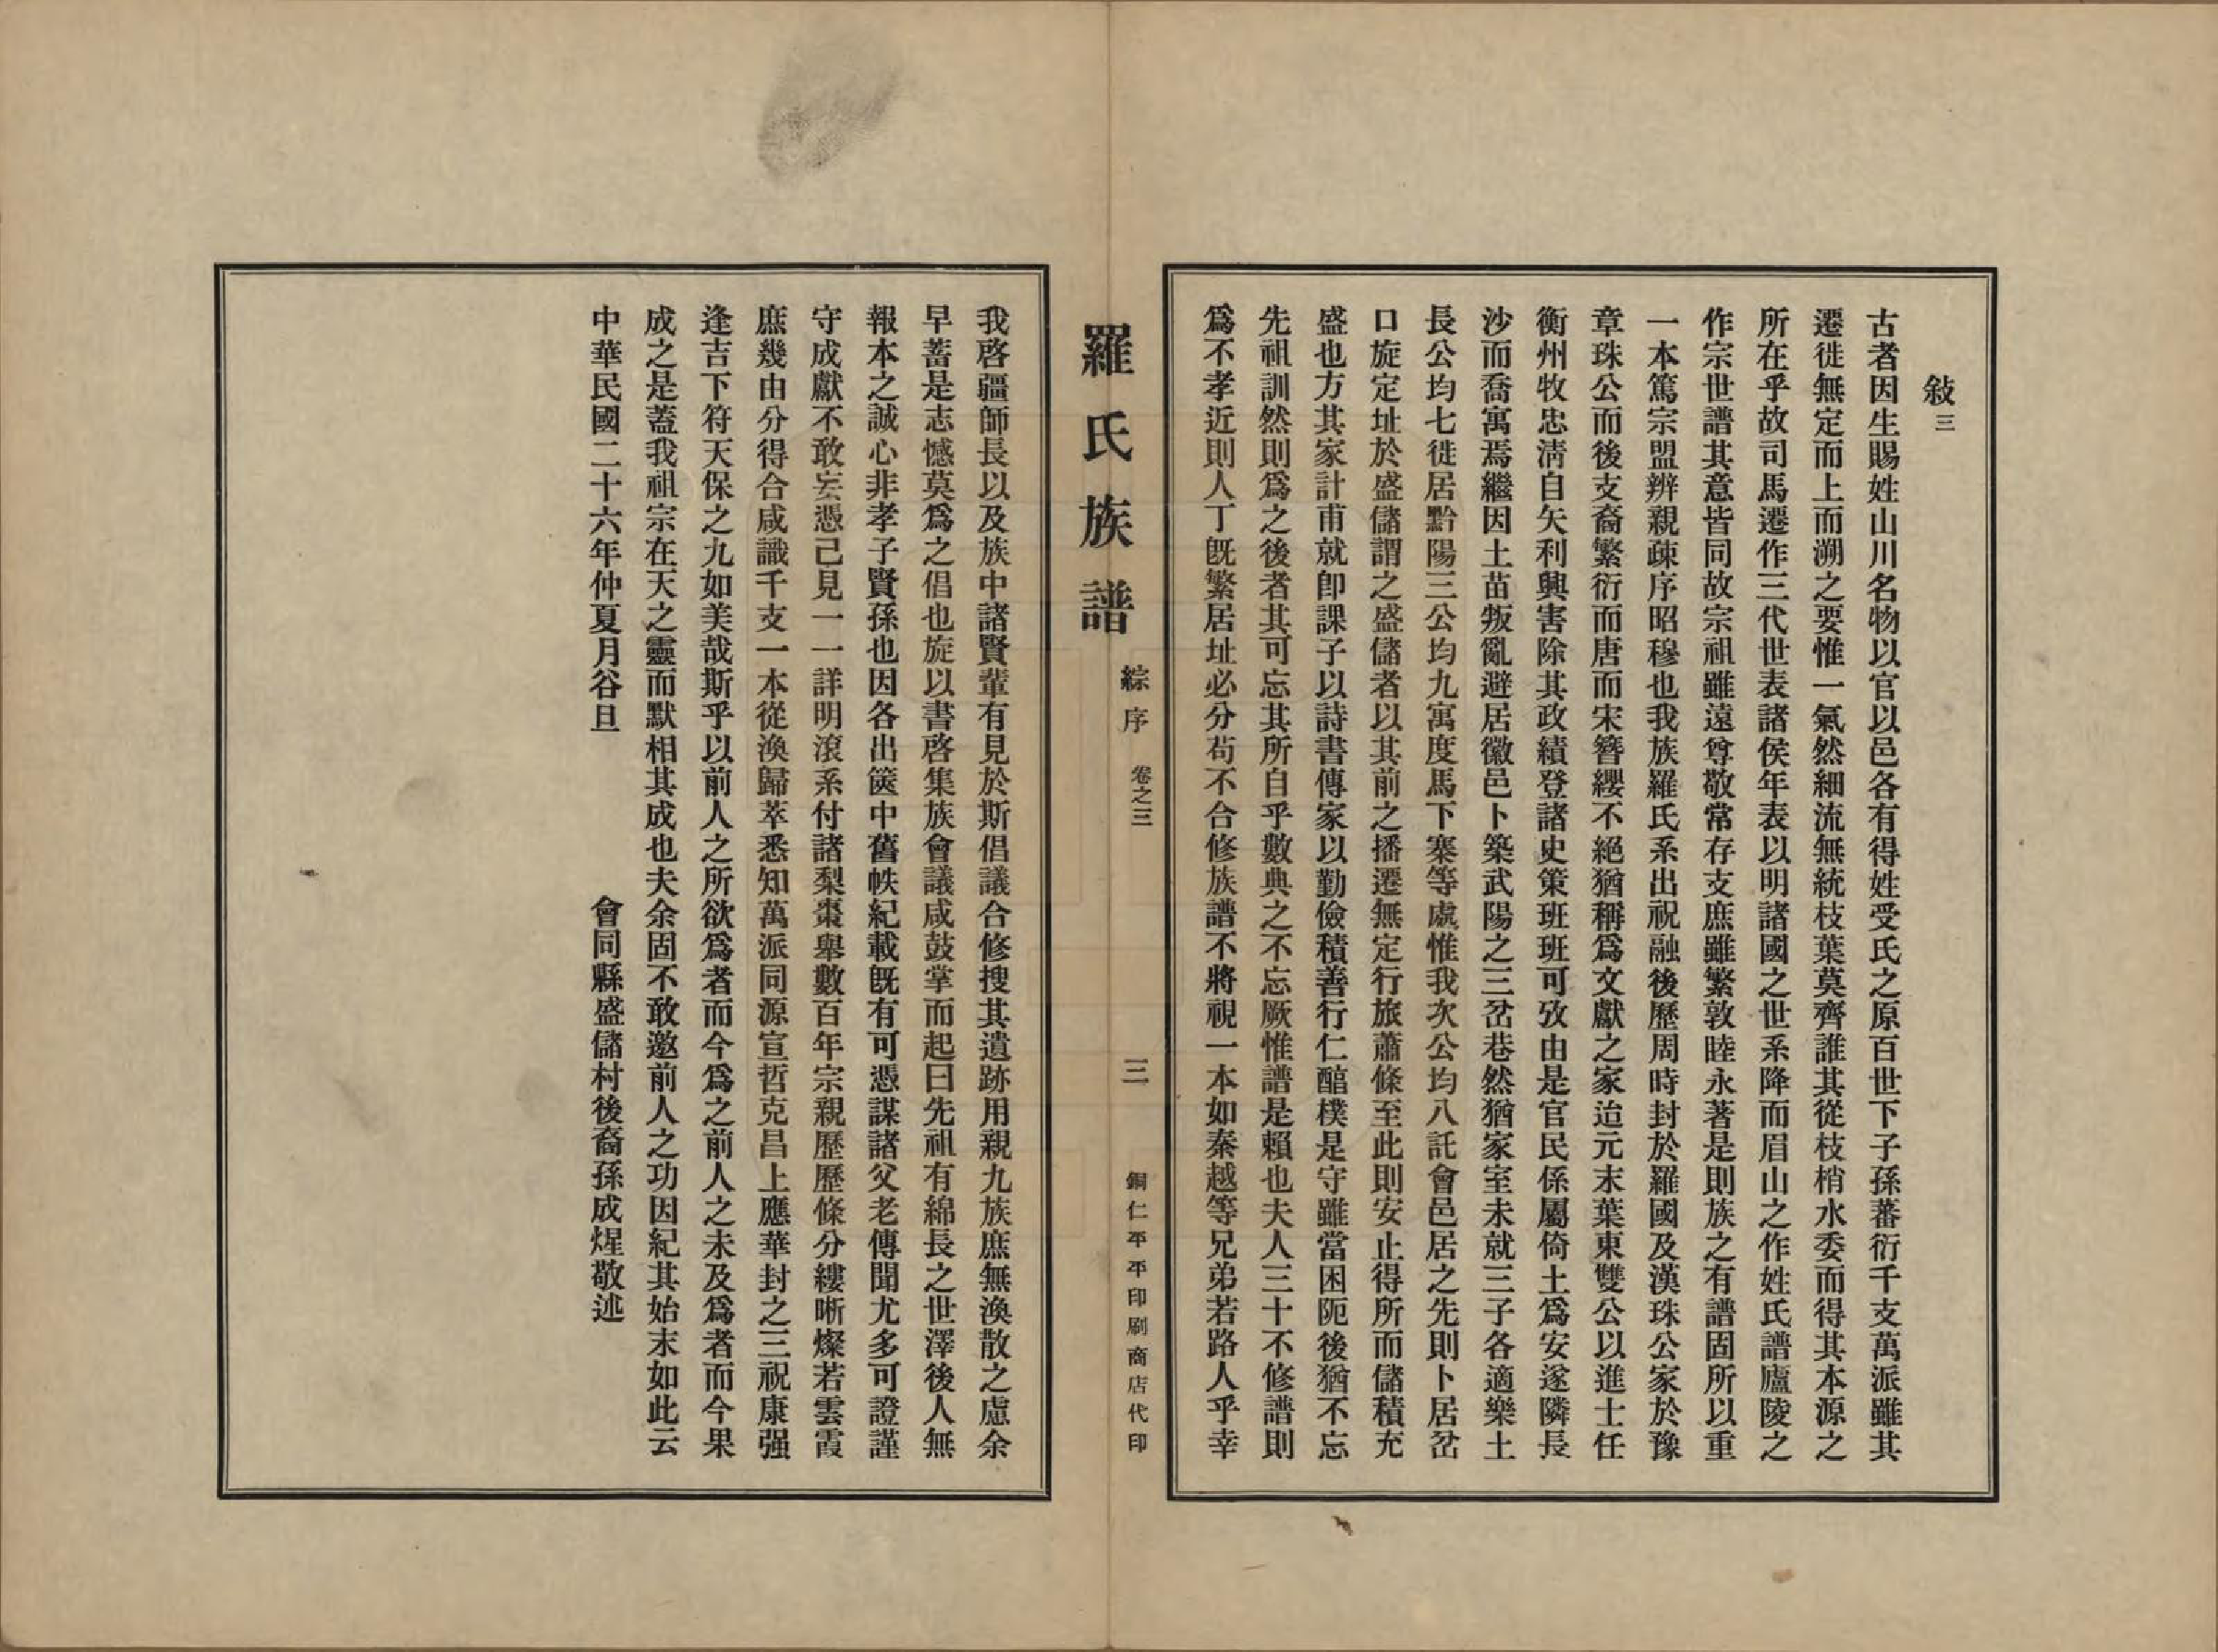 敍三
古者因生賜姓山川名物以官以邑各有得姓受氏之原百世下子孫蕃衍千支萬派雖其
遷徙無定而上而溯之要惟一氣然細流無統枝葉莫齊誰其從枝梢水委而得其本源之
所在乎故司馬遷作三代世表諸侯年表以明諸國之世系降而眉山之作姓氏譜廬陵之
作宗世譜其意皆同故宗祖雖遠尊敬常存支庶雖繁敦睦永著是則族之有譜固所以重
一本篤宗盟辨親疎序昭穆也我族羅氏系出祝融後歷周時封於羅國及漢珠公家於豫
章珠公而後支裔繁衍而唐而宋簪纓不絕猶稱爲文獻之家迨元末葉東雙公以進士任
衡州牧忠淸自矢利興害除其政績登諸史策班班可攷由是官民係屬倚土爲安遂隣長
沙而喬寓焉繼因土苗叛亂避居徽邑卜築武陽之三岔巷然猶家室未就三子各適樂土
長公均七徙居黔陽三公均九寓度馬下寨等處惟我次公均八託會邑居之先則卜居岔
口旋定址於盛儲謂之盛儲者以其前之播遷無定行旅蕭條至此則安止得所而儲積充
盛也方其家計甫就卽課子以詩書傳家以勤儉積善行仁醕樸是守雖當困阨後猶不忘
先祖訓然則爲之後者其可忘其所自乎數典之不忘厥惟譜是賴也夫人三十不修譜則
爲不孝近則人丁旣繁居址必分苟不合修族譜不將視一本如秦越等兄弟若路人乎幸
羅氏族譜
綜序
卷之三
三
銅仁平平印刷商店代印
我啓疆師長以及族中諸賢輩有見於斯倡議合修搜其遺跡用親九族庶無渙散之慮余
早蓄是志憾莫爲之倡也旋以書啓集族會議咸鼓掌而起曰先祖有綿長之世澤後人無
報本之誠心非孝子賢孫也因各出篋中舊帙紀載旣有可憑謀諸父老傳聞尤多可證謹
守成獻不敢妄憑己見一一詳明滾系付諸梨棗舉數百年宗親歷歷條分縷晰燦若雲霞
庶幾由分得合咸識千支一本從渙歸萃悉知萬派同源宣哲克昌上應華封之三祝康强
逢吉下符天保之九如美哉斯乎以前人之所欲爲者而今爲之前人之未及爲者而今果
成之是蓋我祖宗在天之靈而默相其成也夫余固不敢邀前人之功因紀其始末如此云
中華民國二十六年仲夏月谷旦
會同縣盛儲村後裔孫成煋敬述